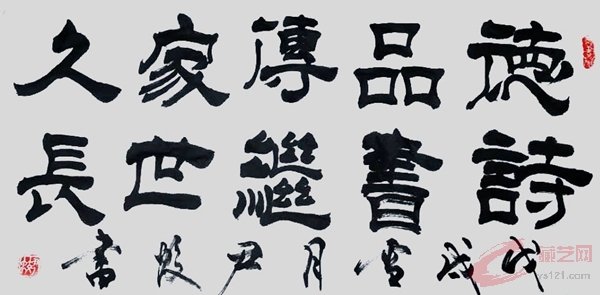 德品傳家久
詩書繼世長
戊戌雪月尹書